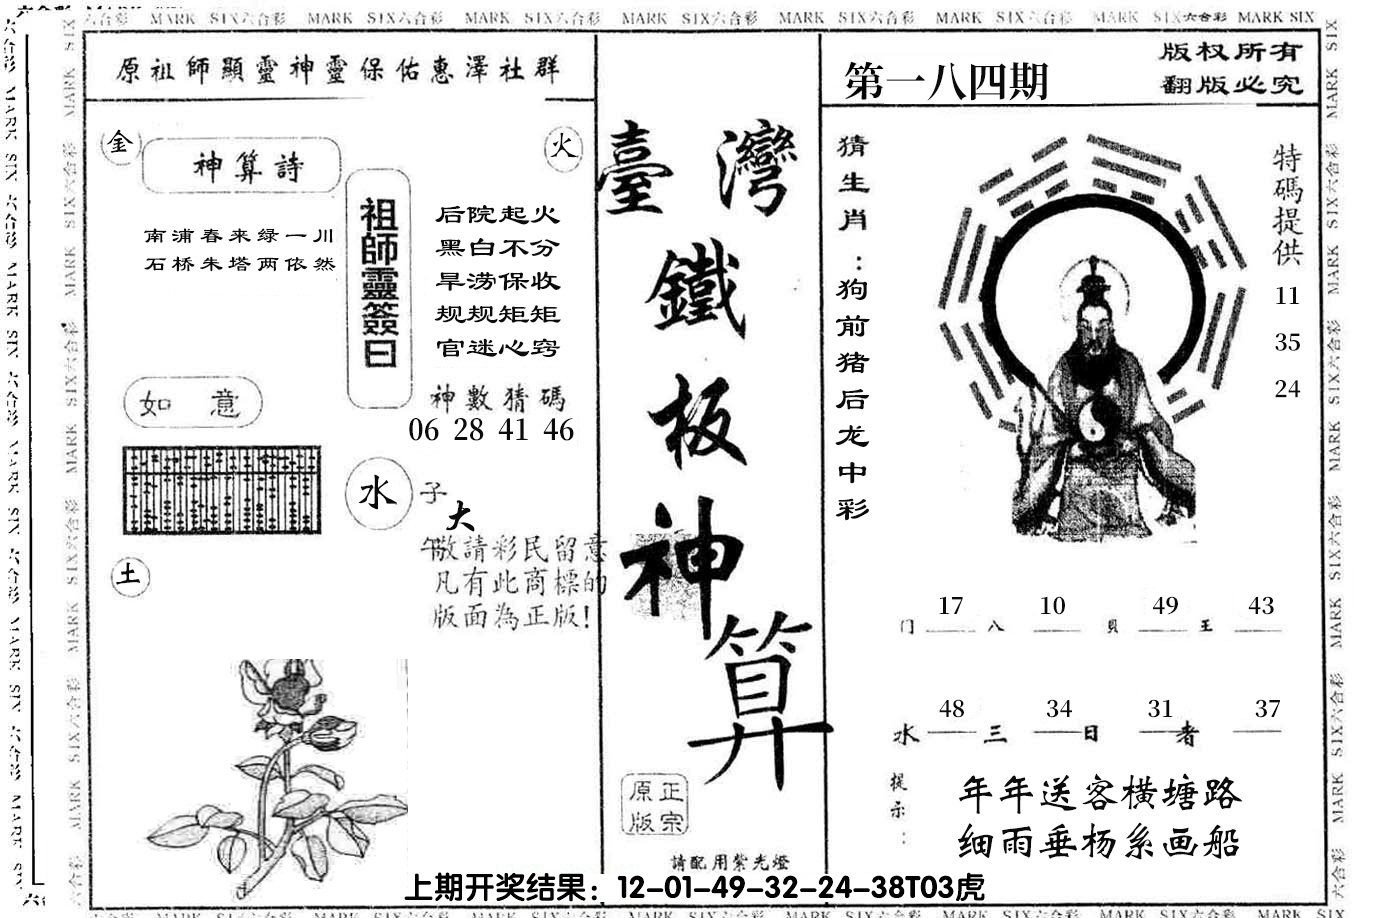 MARK SIX六合彩 MARK SIX六合彩 MARK SIX六合彩 MARK SIX六合彩 MARK SIX六合彩 MARK SIX六合彩 MARK SIX六合彩 MARK SIX
原祖師顯靈神靈保佑惠澤社群
金
火
神算詩
南浦春来绿一川
石桥朱塔两依然
祖師靈簽曰
后院起火
黑白不分
旱涝保收
规规矩矩
官迷心窍
神數猜碼
06 28 41 46
如意
水
子
大
午
土
敬請彩民留意
凡有此商標的
版面為正版!
臺灣
鐵
板
神
算
正宗
原版
請配用紫光燈
第一八四期
版权所有
翻版必究
猜生肖:狗前猪后龙中彩
特碼提供
11
35
24
17 10 49 43
门 八 貝 王
48 34 31 37
水 三 日 者
提示:
年年送客横塘路
细雨垂杨系画船
上期开奖结果：12-01-49-32-24-38T03虎